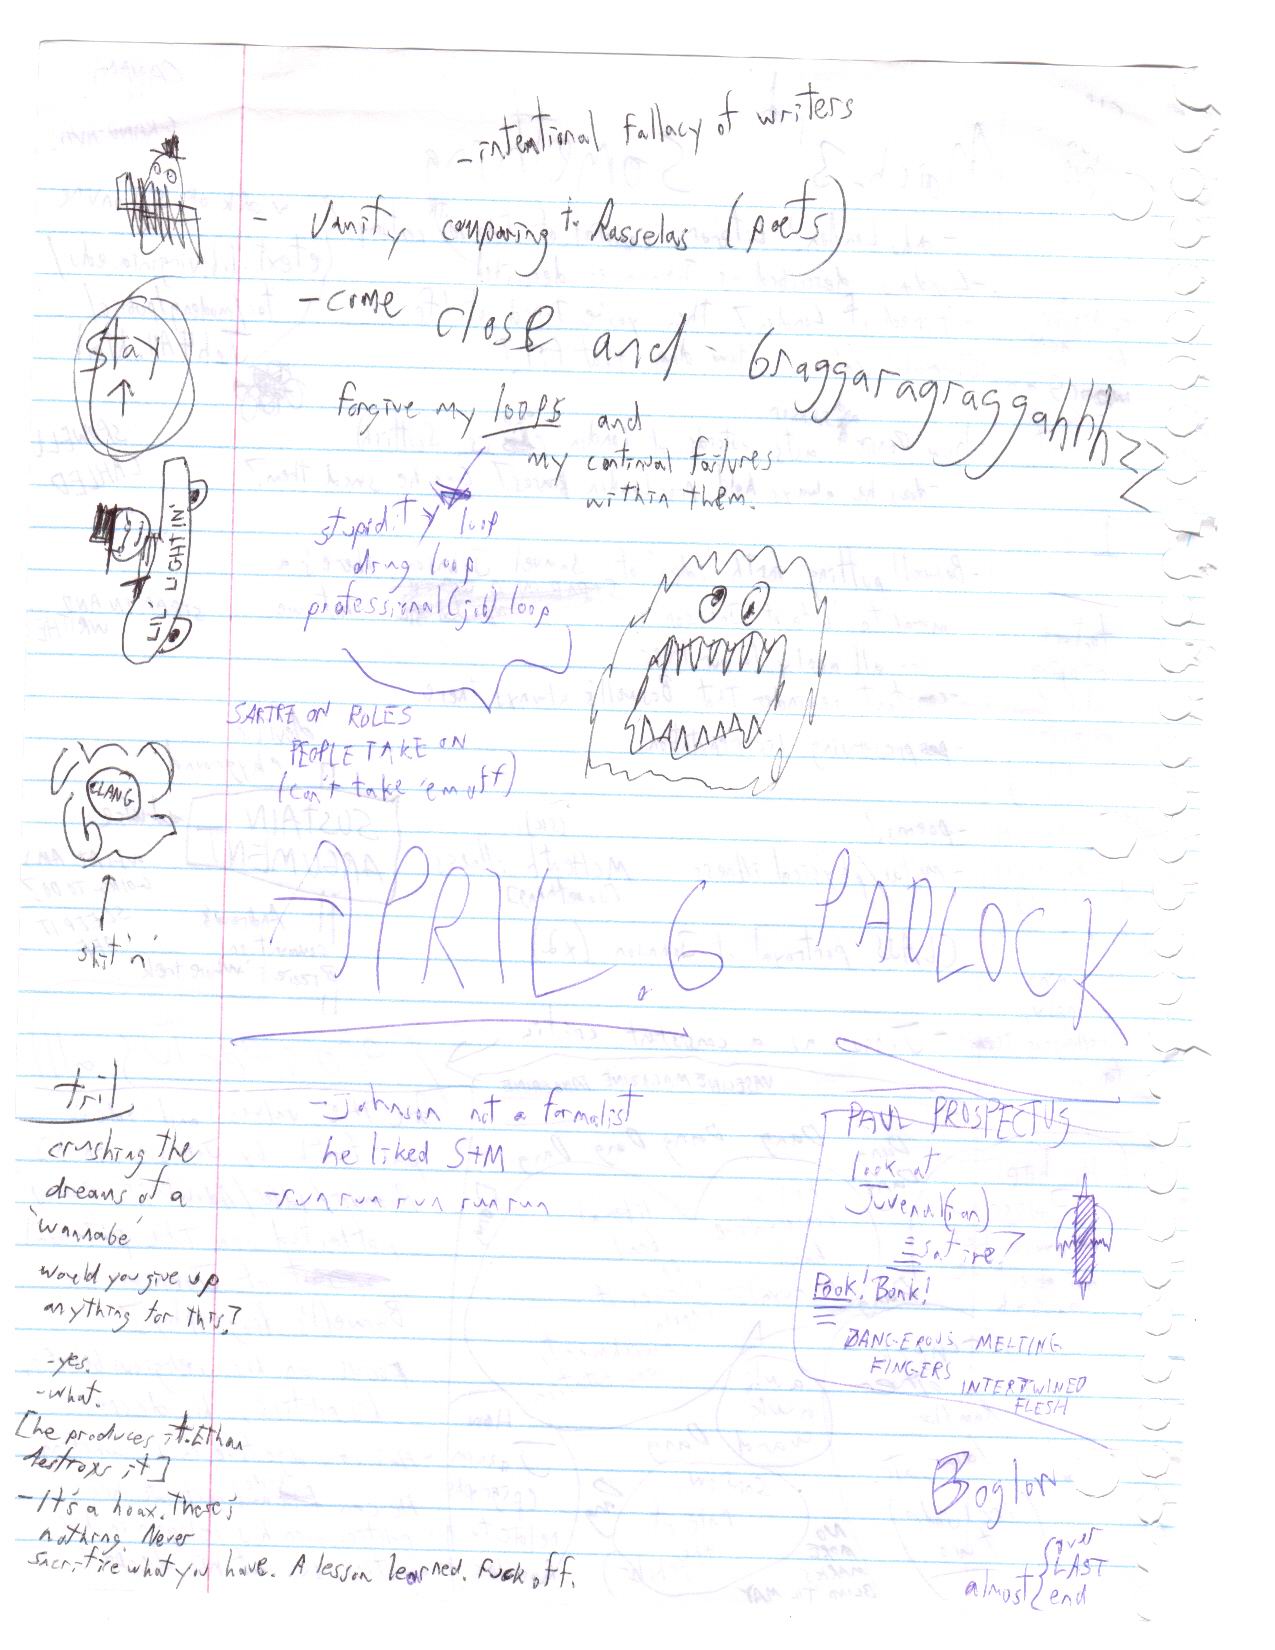 -intentional fallacy of writers
- Vanity comparing to Rasselas (poets)
-come close and - braggaragraggahhhzz
stay
↑
forgive my loops and
my continual failures
within them.
stupidity loop
drug loop
professional (job) loop
LIL' LIGHTIN'
SARTRE ON ROLES
PEOPLE TAKE ON
(can't take 'em off)
CLANG
↑
shit 'n'
APRIL. 6 PADLOCK
tril
crushing the
dreams of a
'wannabe'
would you give up
anything for this?
-yes.
-what.
[he produces it. Ethan
destroys it]
-It's a hoax. There's
nothing. Never
sacrifice what you have. A lesson learned. Fuck off.
-Johnson not a formalist
he liked S+M
-run run run run run
PAUL PROSPECTUS
look at
Juvenal(ian)
satire?
Pook! Bonk!
DANGEROUS MELTING
FINGERS
INTERTWINED
FLESH
Boglor
almost { over
LAST
end